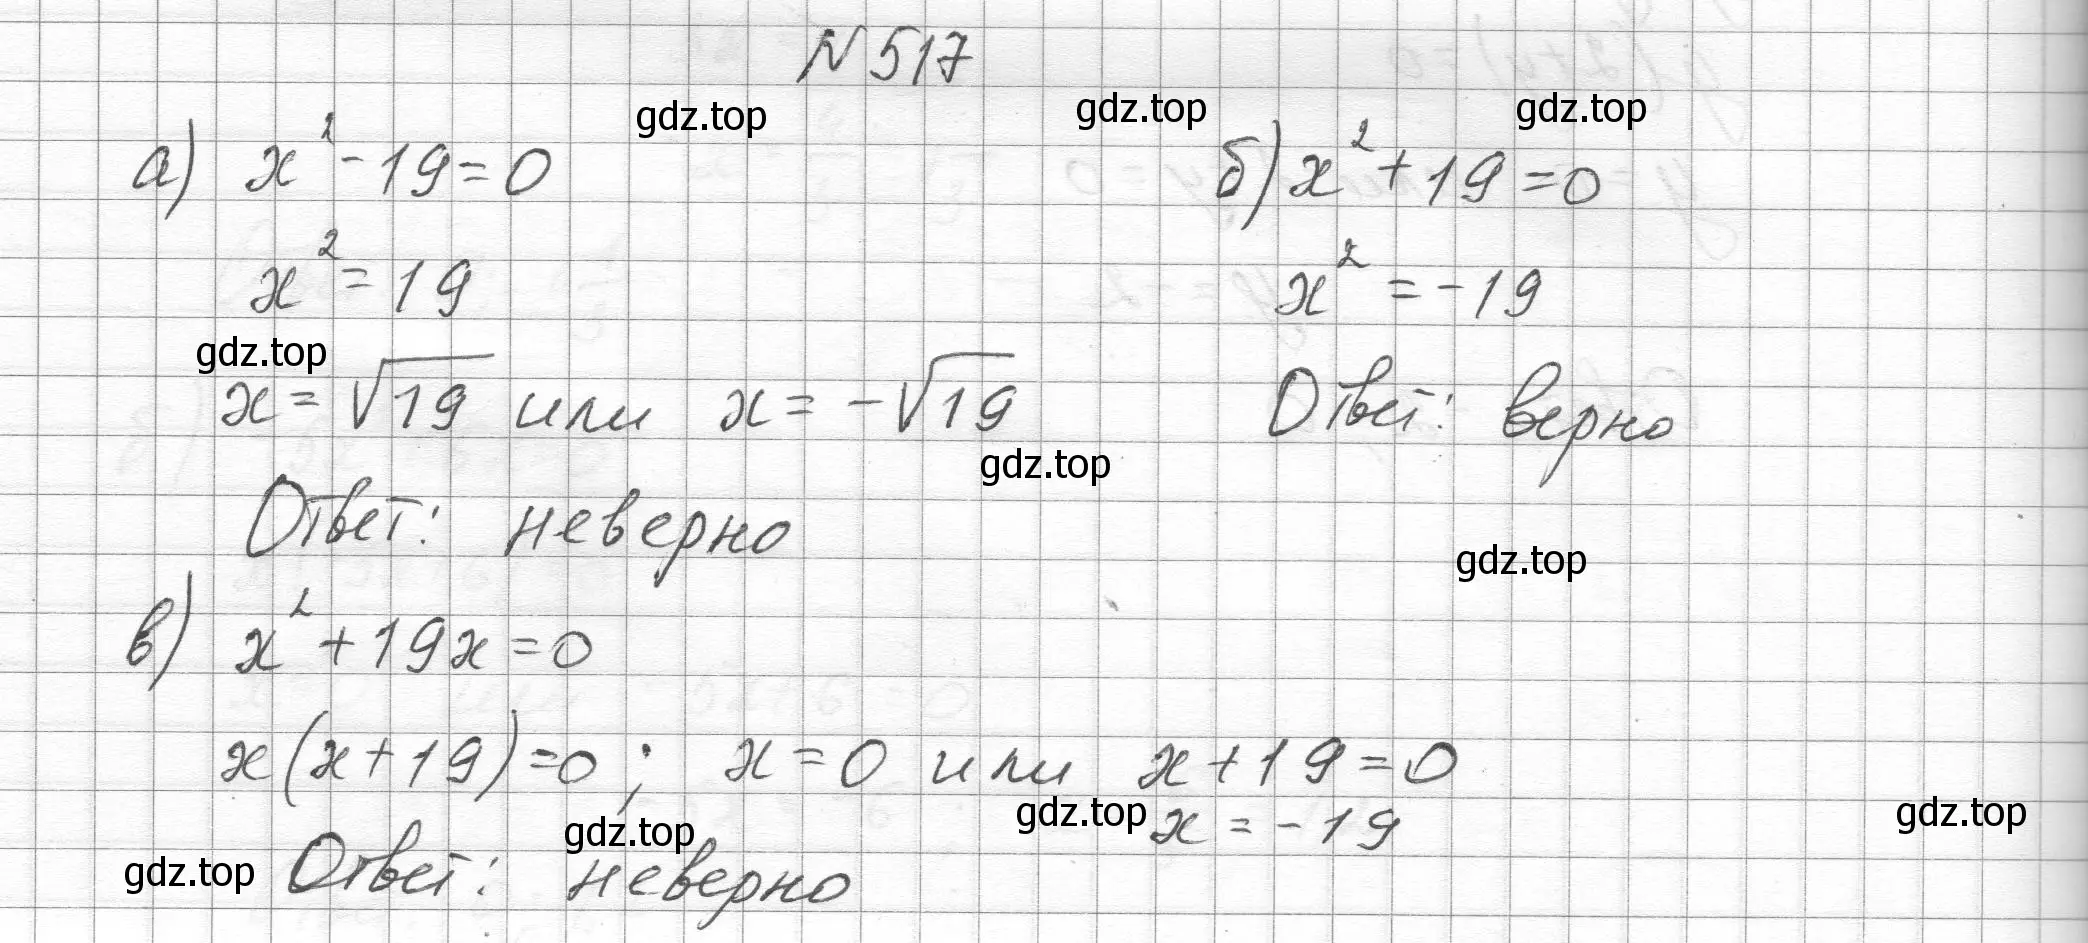 N 517
а) x² - 19 = 0
x² = 19
x = √19 или x = -√19
Ответ: неверно
б) x² + 19 = 0
x² = -19
Ответ: верно
в) x² + 19x = 0
x(x + 19) = 0; x = 0 или x + 19 = 0
x = -19
Ответ: неверно
gdz.top
gdz.top
gdz.top
gdz.top
gdz.top
gdz.top
gdz.top
gdz.top
gdz.top
gdz.top